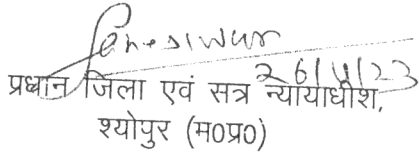 26/4/23
प्रधान जिला एवं सत्र न्यायाधीश,
श्योपुर (म0प्र0)